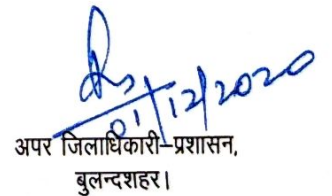 01/12/2020
अपर जिलाधिकारी-प्रशासन,
बुलन्दशहर।